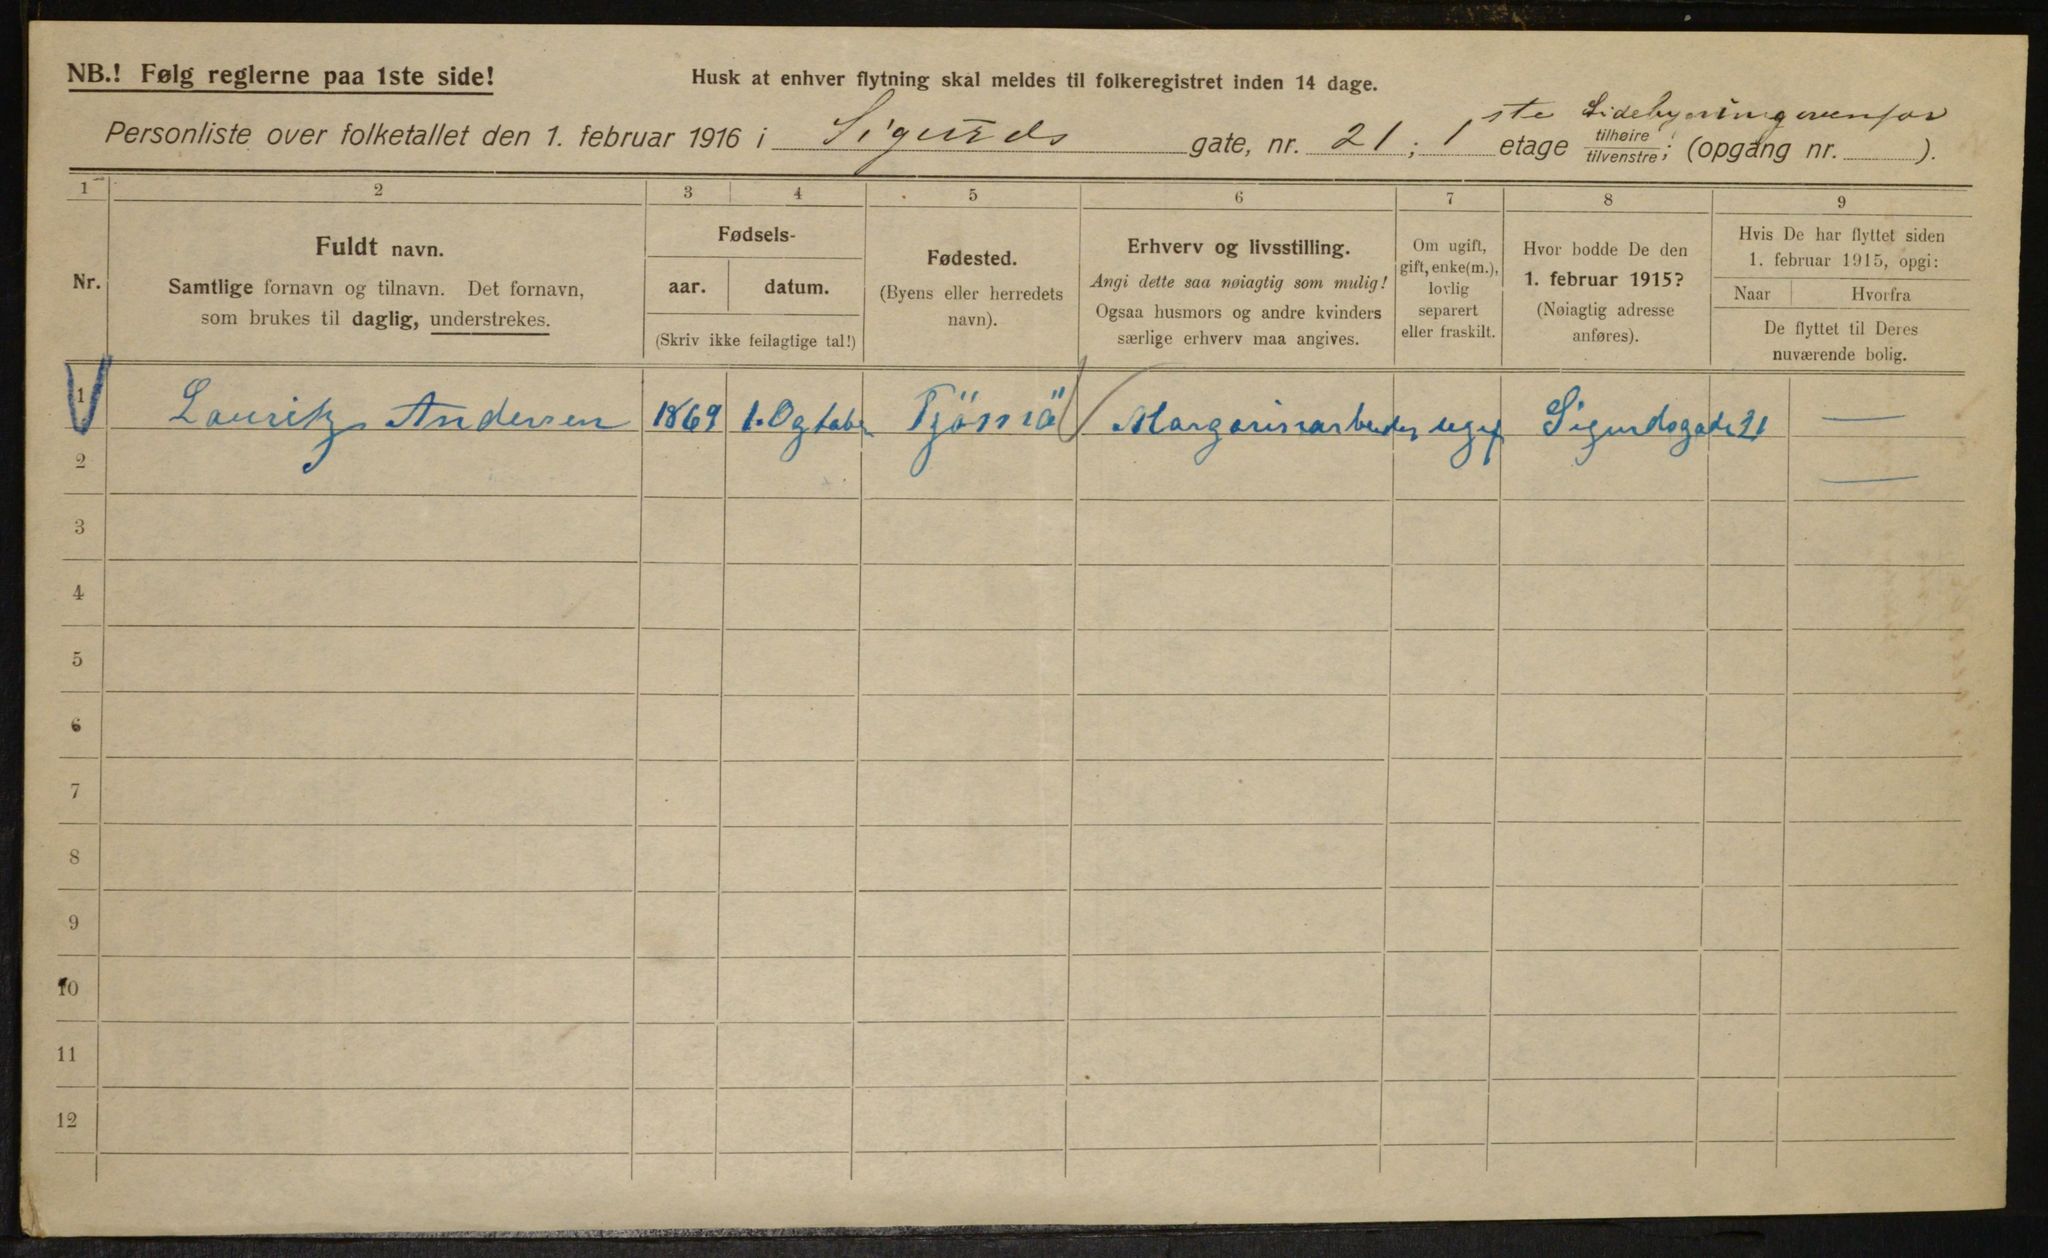 NB.! Følg reglerne paa 1ste side!
Husk at enhver flytning skal meldes til folkeregistret inden 14 dage.
Personliste over folketallet den 1. februar 1916 i Sigurds gate, nr. 21; 1 ste etage tilhøire/tilvenstre; (opgang nr. ).
1 2 3 4 5 6 7 8 9
Nr.
Fuldt navn.
Samtlige fornavn og tilnavn. Det fornavn,
som brukes til daglig, understrekes.
Fødsels-
aar. datum.
(Skriv ikke feilagtige tal!)
Fødested.
(Byens eller herredets
navn).
Erhverv og livsstilling.
Angi dette saa nøiagtig som mulig!
Ogsaa husmors og andre kvinders
særlige erhverv maa angives.
Om ugift,
gift, enke(m.),
lovlig
separert
eller fraskilt.
Hvor bodde De den
1. februar 1915?
(Nøiagtig adresse
anføres).
Hvis De har flyttet siden
1. februar 1915, opgi:
Naar Hvorfra
De flyttet til Deres
nuværende bolig.
1 Lauritz Andersen 1869 1. Ogtober Tjömö Margarinarbeider ugif Sigurdsgade 21 —
2 —
3
4
5
6
7
8
9
10
11
12